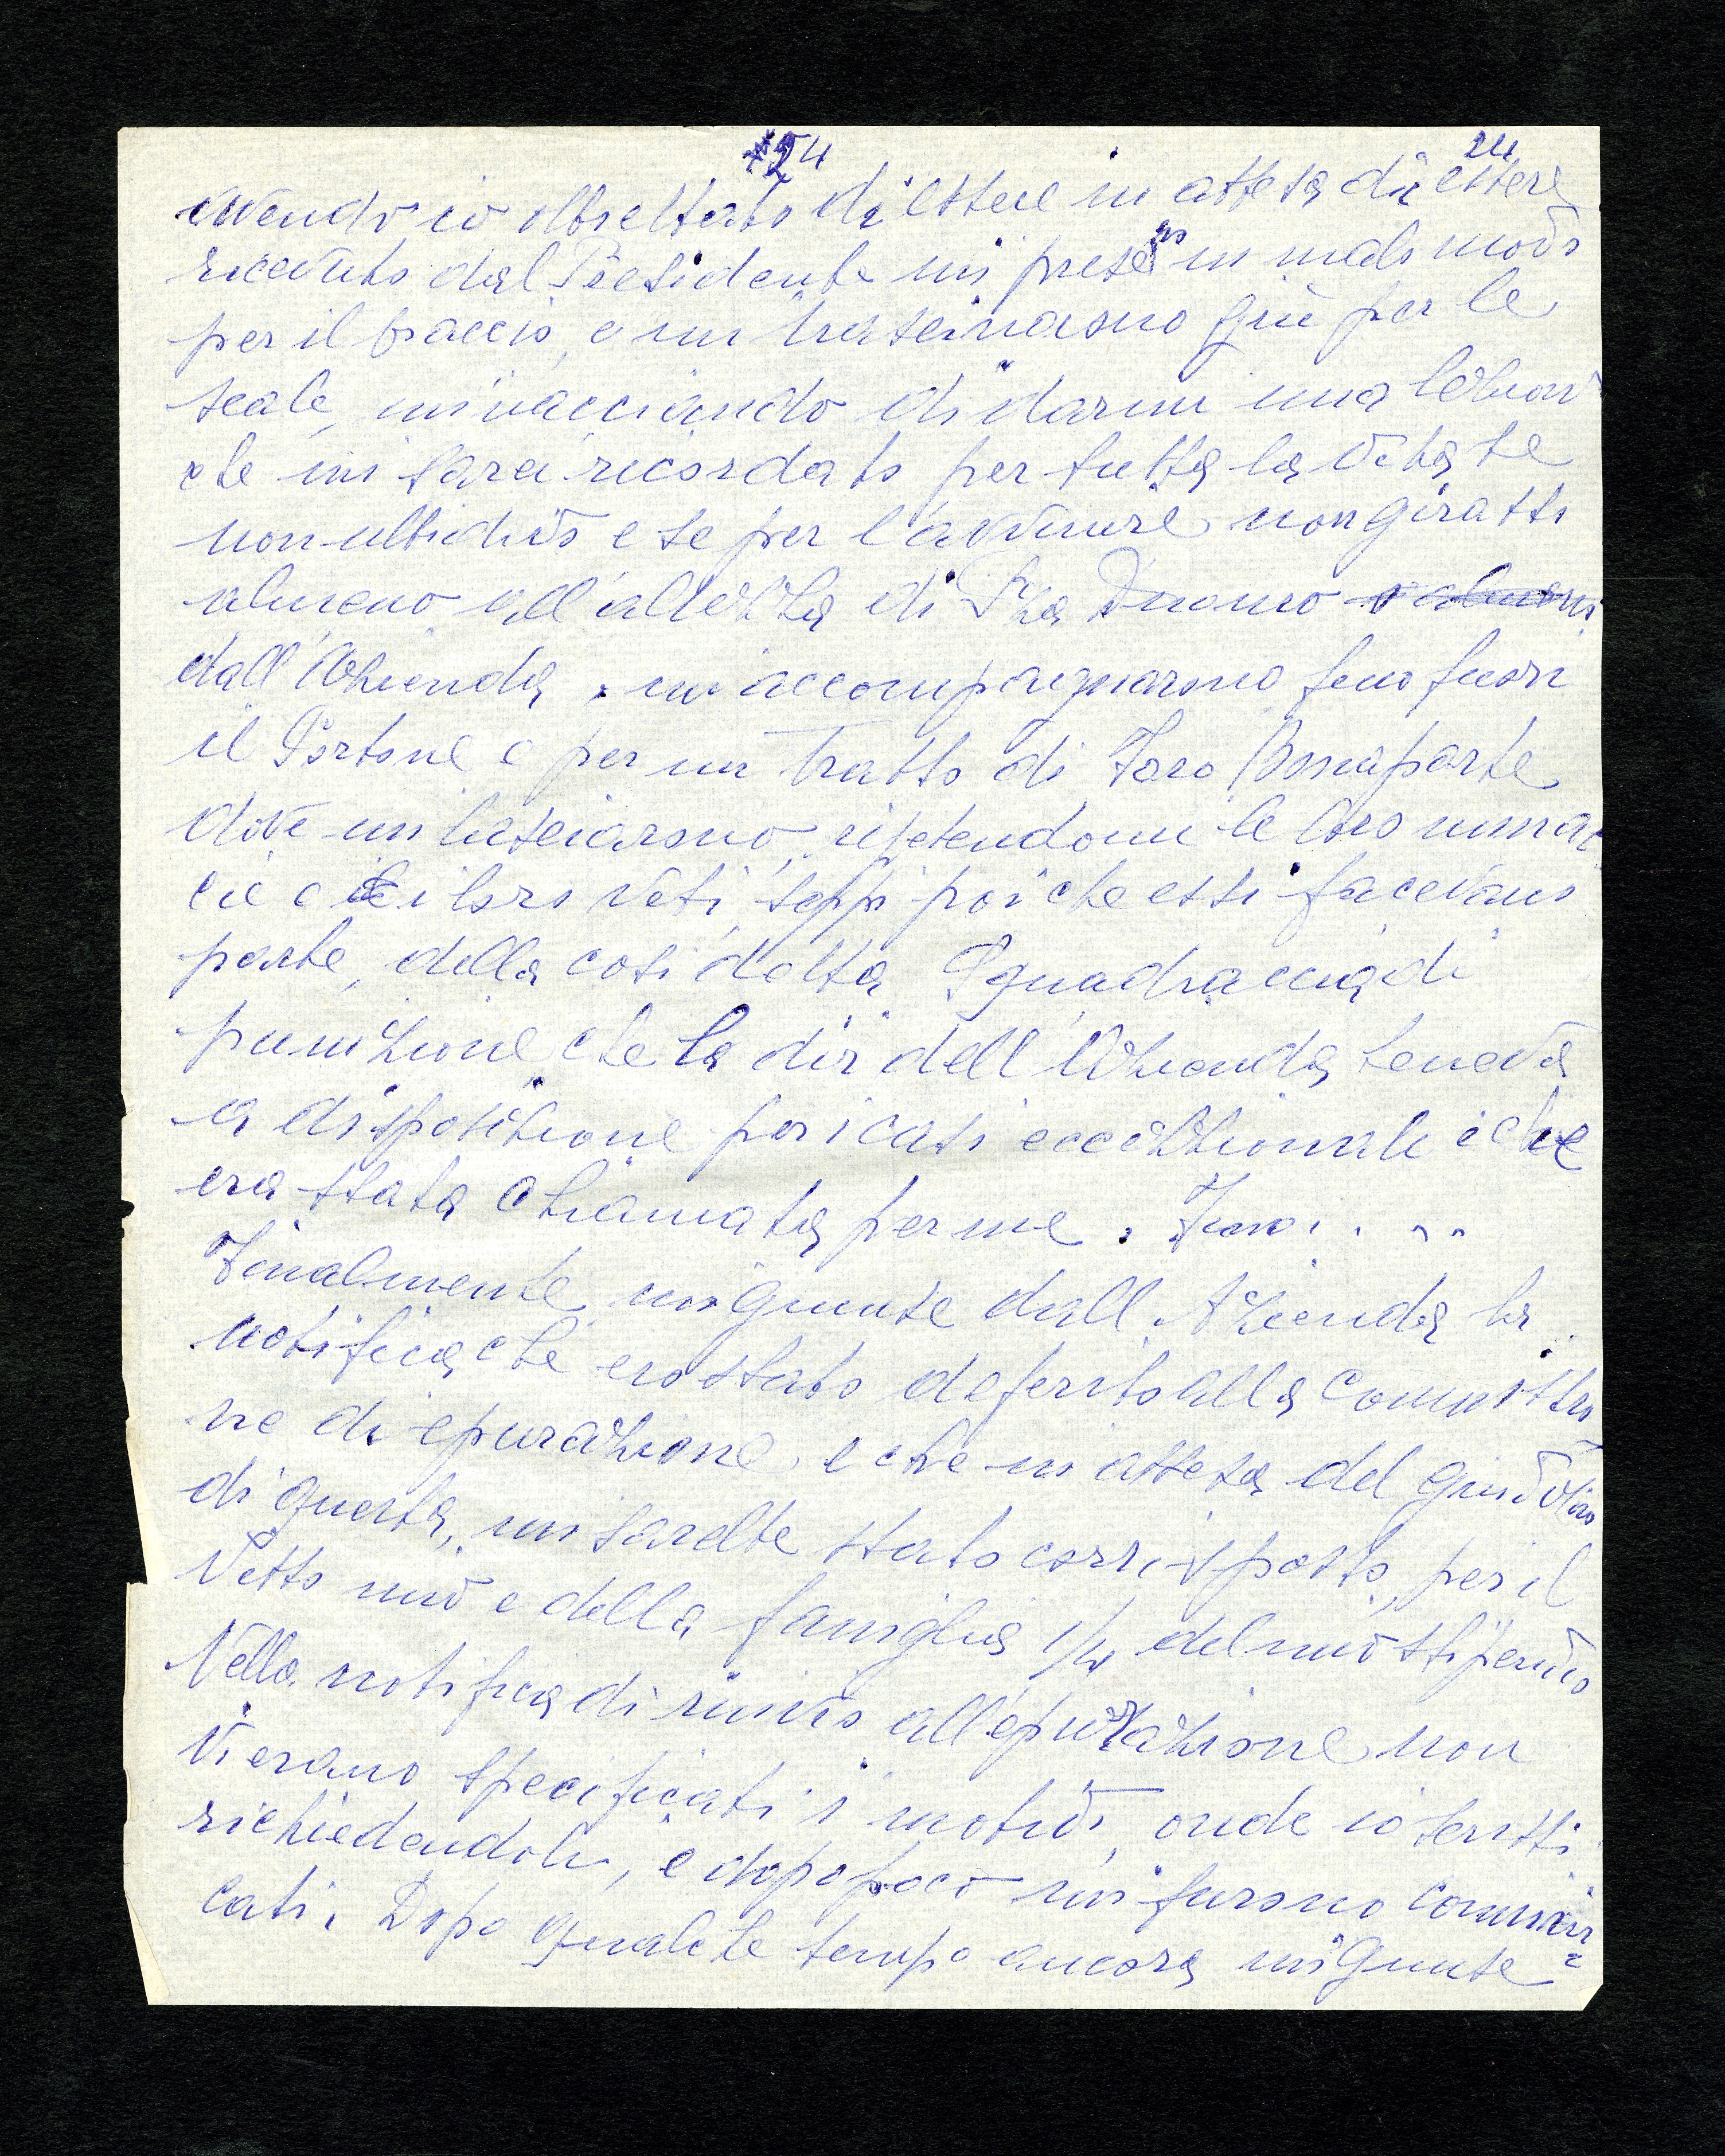 24
24
avendo io obbiettato di essere in attesa di essere
ricevuto dal Presidente mi presero in malo modo
per il braccio, e mi trascinarono giù per le
scale, minacciando di darmi una lezione
che mi sarei ricordato per tutta la vita se
non ubbidivo e se per l'avvenire non girassi
almeno all'altezza di Pza Duomo
dall'Azienda. mi accompagnarono fino fuori
il Portone e per un tratto di Foro Bonaparte
dove mi lasciarono, ripetendomi le loro minac
cie e i loro veti, seppi poi che essi facevano
parte, della cosi detta Squadraccia di
punizione che la dir dell'Azienda teneva
a disposizione per i casi eccezzionali e che
era stata chiamata per me.
Finalmente mi giunse dall'Azienda la
notifica che ero stato deferito alla Commissio
ne di epurazione e che in attesa del giudizio
di questa, mi sarebbe stato corrisposto, per il
vitto mio e della famiglia 1/4 del mio stipendio
Nella notifica di rinvio all'epurazione non
vi erano specificati i motivi, onde io scrissi
richiedendoli, e dopo poco mi furono comuni=
cati. Dopo qualche tempo ancora mi giunse